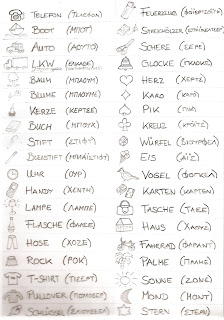 TELEFON (ΤΕΛΕΦΟΝ)
BOOT (ΜΠΟΤ)
AUTO (ΑΟΥΤΟ)
LKW
BAUM (ΜΠΑΟΥΜ)
BLUME (ΜΠΛΟΥΜΕ)
KERZE (ΚΕΡΤΣΕ)
BUCH (ΜΠΟΥΧ)
STIFT (ΣΤΙΦΤ)
BLEISTIFT (ΜΠΛΑΪΣΤΙΦΤ)
UHR (ΟΥΡ)
HANDY (ΧΕΝΤΙ)
LAMPE (ΛΑΜΠΕ)
FLASCHE (ΦΛΑΣΕ)
HOSE (ΧΟΖΕ)
ROCK (ΡΟΚ)
T-SHIRT (ΤΙΣΕΡΤ)
PULLOVER (ΠΟΥΛΟΒΕΡ)
SCHLÜSSEL
FEUERZEUG
STREICHHÖLZER
SCHERE (ΣΕΡΕ)
GLOCKE (ΓΚΛΟΚΕ)
HERZ (ΧΕΡΤΣ)
KARO (ΚΑΡΟ)
PIK (ΠΙΚ)
KREUZ (ΚΡΟΪΤΣ)
WÜRFEL (ΒΙΟΥΡΦΕΛ)
EIS (ΑΪΣ)
VOGEL (ΦΟΓΚΕΛ)
KARTEN (ΚΑΡΤΕΝ)
TASCHE (ΤΑΣΕ)
HAUS (ΧΑΟΥΣ)
FAHRRAD (ΦΑΡΑΝΤ)
PALME (ΠΑΛΜΕ)
SONNE (ΖΟΝΕ)
MOND (ΜΟΝΤ)
STERN (ΣΤΕΡΝ)